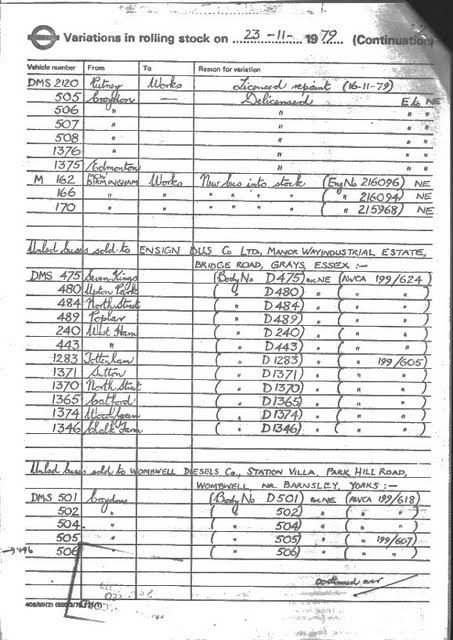 Variations in rolling stock on 23-11- 1979 (Continuation)
Vehicle number From To Reason for variation
DMS 2120 Putney Works Licensed repaint (16-11-79)
505 Croydon — Delicensed E/c NE
506 " " " "
507 " " " "
508 " " " "
1376 " " " "
1375 Edmonton " " "
M 162 MCW BIRMINGHAM Works New bus into stock (Eng No 216096) NE
166 " " " " " " ( " 216094) NE
170 " " " " " " ( " 215968) NE
Unlcd buses sold to ENSIGN BUS Co LTD, MANOR WAY INDUSTRIAL ESTATE,
BRIDGE ROAD, GRAYS, ESSEX :-
DMS 475 Seven Kings (Body No D475) exc NE (AWCA 199/624)
480 Upton Park ( " D480) " ( " " )
484 North Street ( " D484) " ( " " )
489 Poplar ( " D489) " ( " " )
240 West Ham ( " D240) " ( " " )
443 " ( " D443) " ( " " )
1283 Tottenham ( " D1283) " ( " 199/605)
1371 Sutton ( " D1371) " ( " " )
1370 North Street ( " D1370) " ( " " )
1365 Catford ( " D1365) " ( " " )
1374 Wood Green ( " D1374) " ( " " )
1346 Chalk Farm ( " D1346) " ( " " )
Unlcd buses sold to WOMBWELL DIESELS Co., STATION VILLA, PARK HILL ROAD,
WOMBWELL, NR. BARNSLEY, YORKS :-
DMS 501 Croydon (Body No D501) exc NE (AWCA 199/618)
502 " ( " 502) " ( " " )
504 " ( " 504) " ( " " )
505 " ( " 505) " ( " 199/607)
506 ( " 506) " ( " " )
continued over